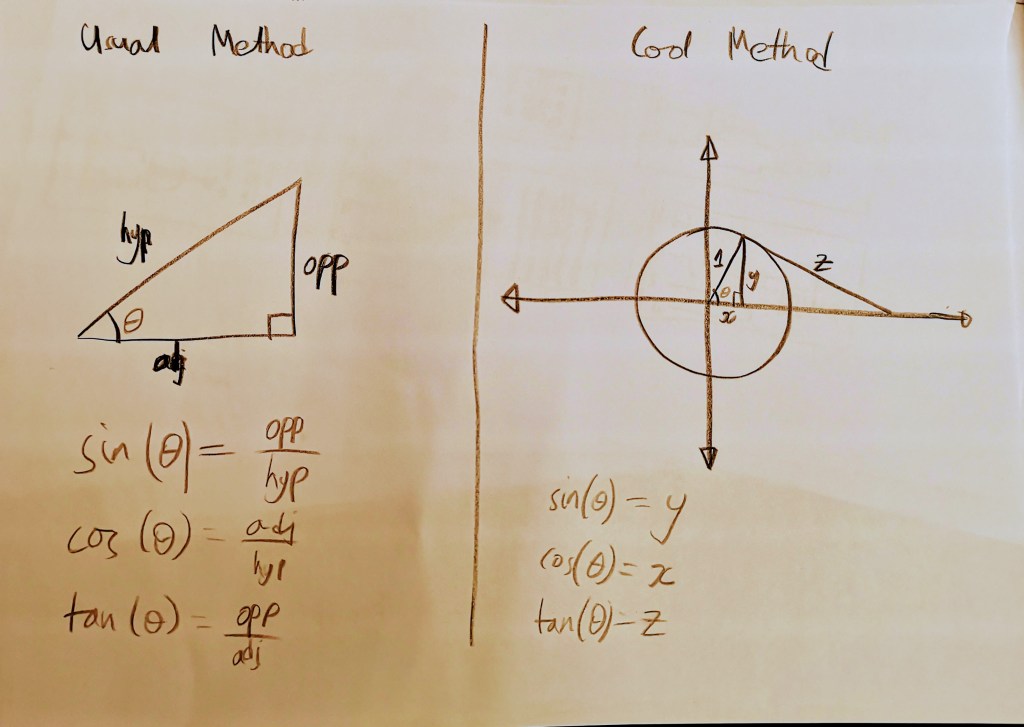 Usual Method
hyp
opp
θ
adj
sin(θ) = opp/hyp
cos(θ) = adj/hyp
tan(θ) = opp/adj
Cool Method
1
z
θ
y
x
sin(θ) = y
cos(θ) = x
tan(θ) = z